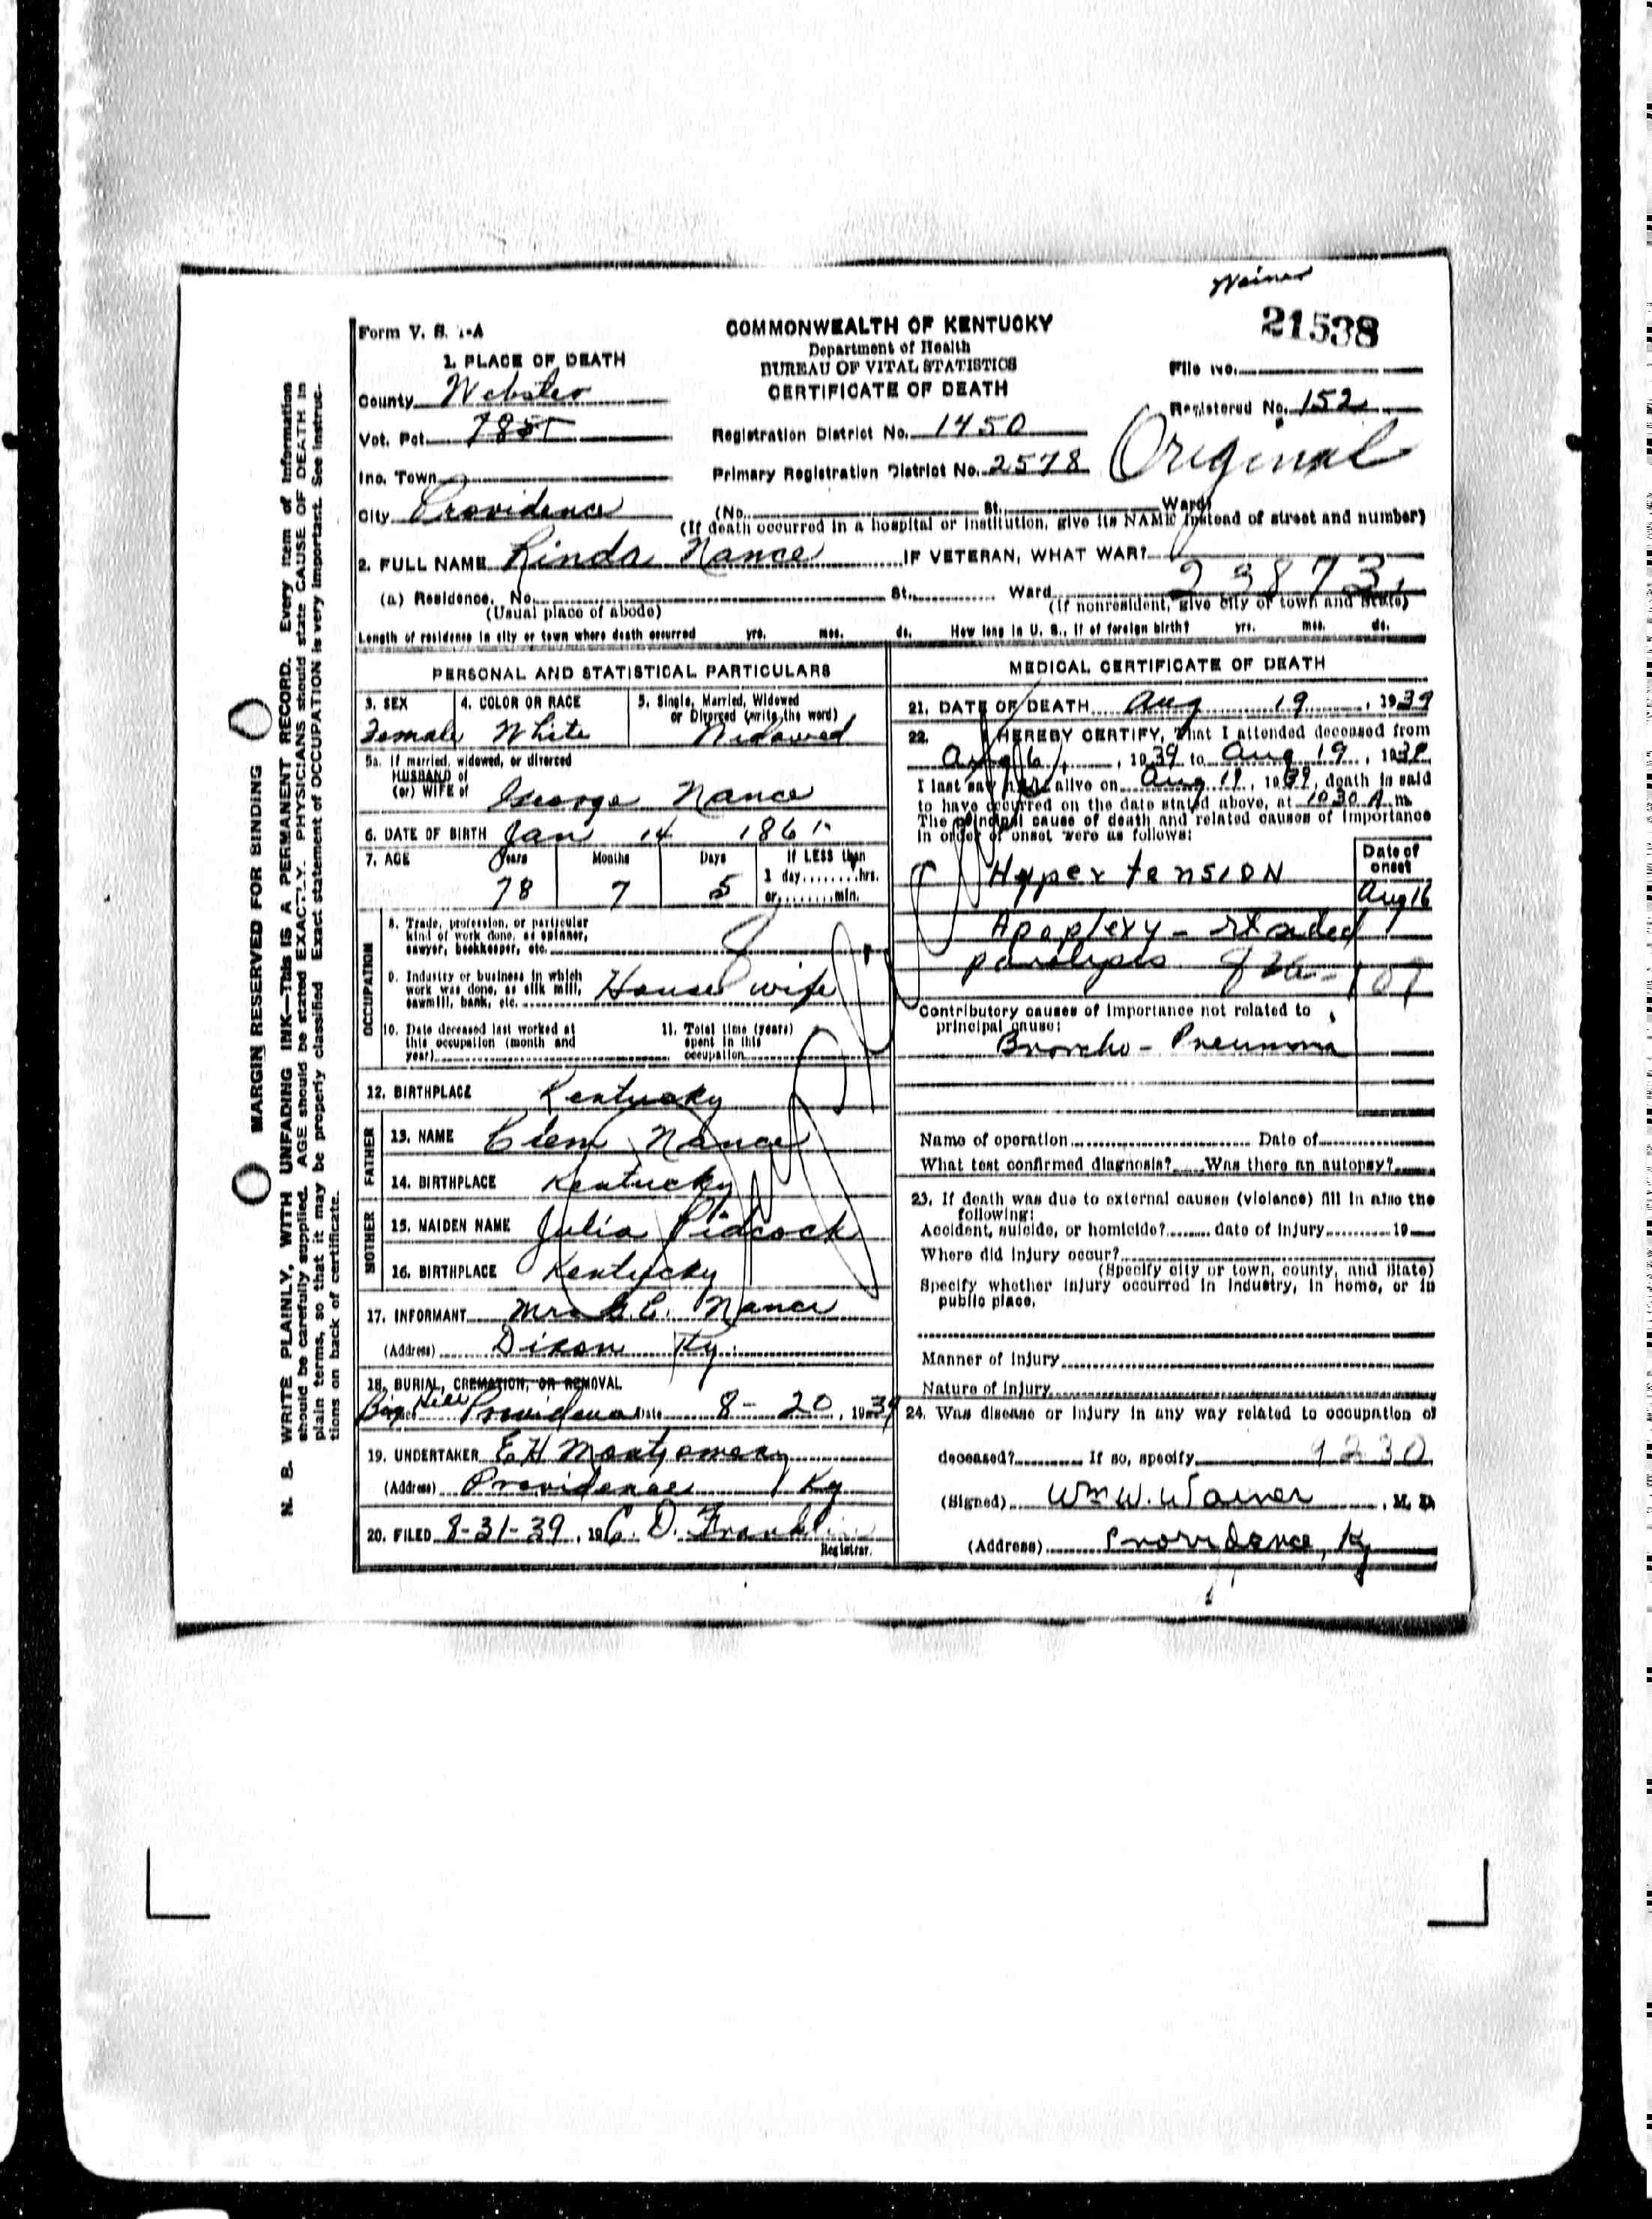 Wainer
21538
Form V. S. 1-A
COMMONWEALTH OF KENTUCKY
Department of Health
BUREAU OF VITAL STATISTICS
CERTIFICATE OF DEATH
File No.
Registered No. 152
Original
1. PLACE OF DEATH
County Webster
Vot. Pct.
Inc. Town
City Providence
Registration District No. 1450
Primary Registration District No. 2578
(No. St. Ward)
(If death occurred in a hospital or institution, give its NAME instead of street and number)
2. FULL NAME Rinda Nance IF VETERAN, WHAT WAR?
23873
(a) Residence. No. St. Ward
(Usual place of abode) (If nonresident, give city or town and State)
Length of residence in city or town where death occurred yrs. mos. ds. How long in U. S., if of foreign birth? yrs. mos. ds.
PERSONAL AND STATISTICAL PARTICULARS
3. SEX 4. COLOR OR RACE 5. Single, Married, Widowed
or Divorced (write the word)
Female White Widowed
5a. If married, widowed, or divorced
HUSBAND of
(or) WIFE of George Nance
6. DATE OF BIRTH Jan 14 1861
7. AGE Years Months Days If LESS than
1 day hrs.
78 7 5 or min.
OCCUPATION
8. Trade, profession, or particular
kind of work done, as spinner,
sawyer, bookkeeper, etc.
9. Industry or business in which
work was done, as silk mill,
sawmill, bank, etc. House wife
10. Date deceased last worked at
this occupation (month and
year)
11. Total time (years)
spent in this
occupation
12. BIRTHPLACE Kentucky
FATHER
13. NAME Clem Nance
14. BIRTHPLACE Kentucky
MOTHER
15. MAIDEN NAME Julia Pidcock
16. BIRTHPLACE Kentucky
17. INFORMANT Mrs G.C. Nance
(Address) Dixon Ky.
18. BURIAL, CREMATION, OR REMOVAL
Place Big Hill Providence Date 8-20, 1939
19. UNDERTAKER E H Montgomery
(Address) Providence Ky
20. FILED 8-31-39, 19 C. D. Franklin
Registrar.
MEDICAL CERTIFICATE OF DEATH
21. DATE OF DEATH Aug 19, 1939
22. I HEREBY CERTIFY, That I attended deceased from
Aug 16, 1939 to Aug 19, 1939
I last saw her alive on Aug 19, 1939, death is said
to have occurred on the date stated above, at 10 30 A m.
The principal cause of death and related causes of importance
in order of onset were as follows:
Date of
onset
Hypertension
Aug 16
Apoplexy -
paralysis
Contributory causes of importance not related to
principal cause:
Broncho - Pneumonia
Name of operation Date of
What test confirmed diagnosis? Was there an autopsy?
23. If death was due to external causes (violence) fill in also the
following:
Accident, suicide, or homicide? date of injury 19
Where did injury occur?
(Specify city or town, county, and State)
Specify whether injury occurred in industry, in home, or in
public place.
Manner of injury
Nature of injury
24. Was disease or injury in any way related to occupation of
deceased? If so, specify 9230
(Signed) Wm W. Wainer, M. D.
(Address) Providence, Ky
MARGIN RESERVED FOR BINDING
N. B. WRITE PLAINLY, WITH UNFADING INK—THIS IS A PERMANENT RECORD. Every item of information
should be carefully supplied. AGE should be stated EXACTLY. PHYSICIANS should state CAUSE OF DEATH in
plain terms, so that it may be properly classified. Exact statement of OCCUPATION is very important. See instruc-
tions on back of certificate.